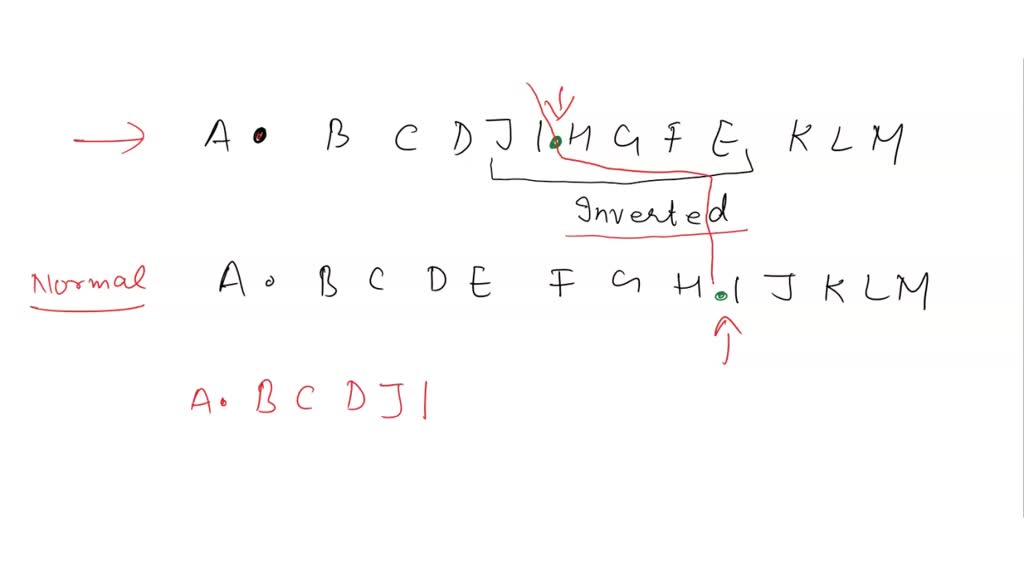 A • B C D J I • H G F E K L M
Inverted
Normal A • B C D E F G H • I J K L M
A • B C D J I